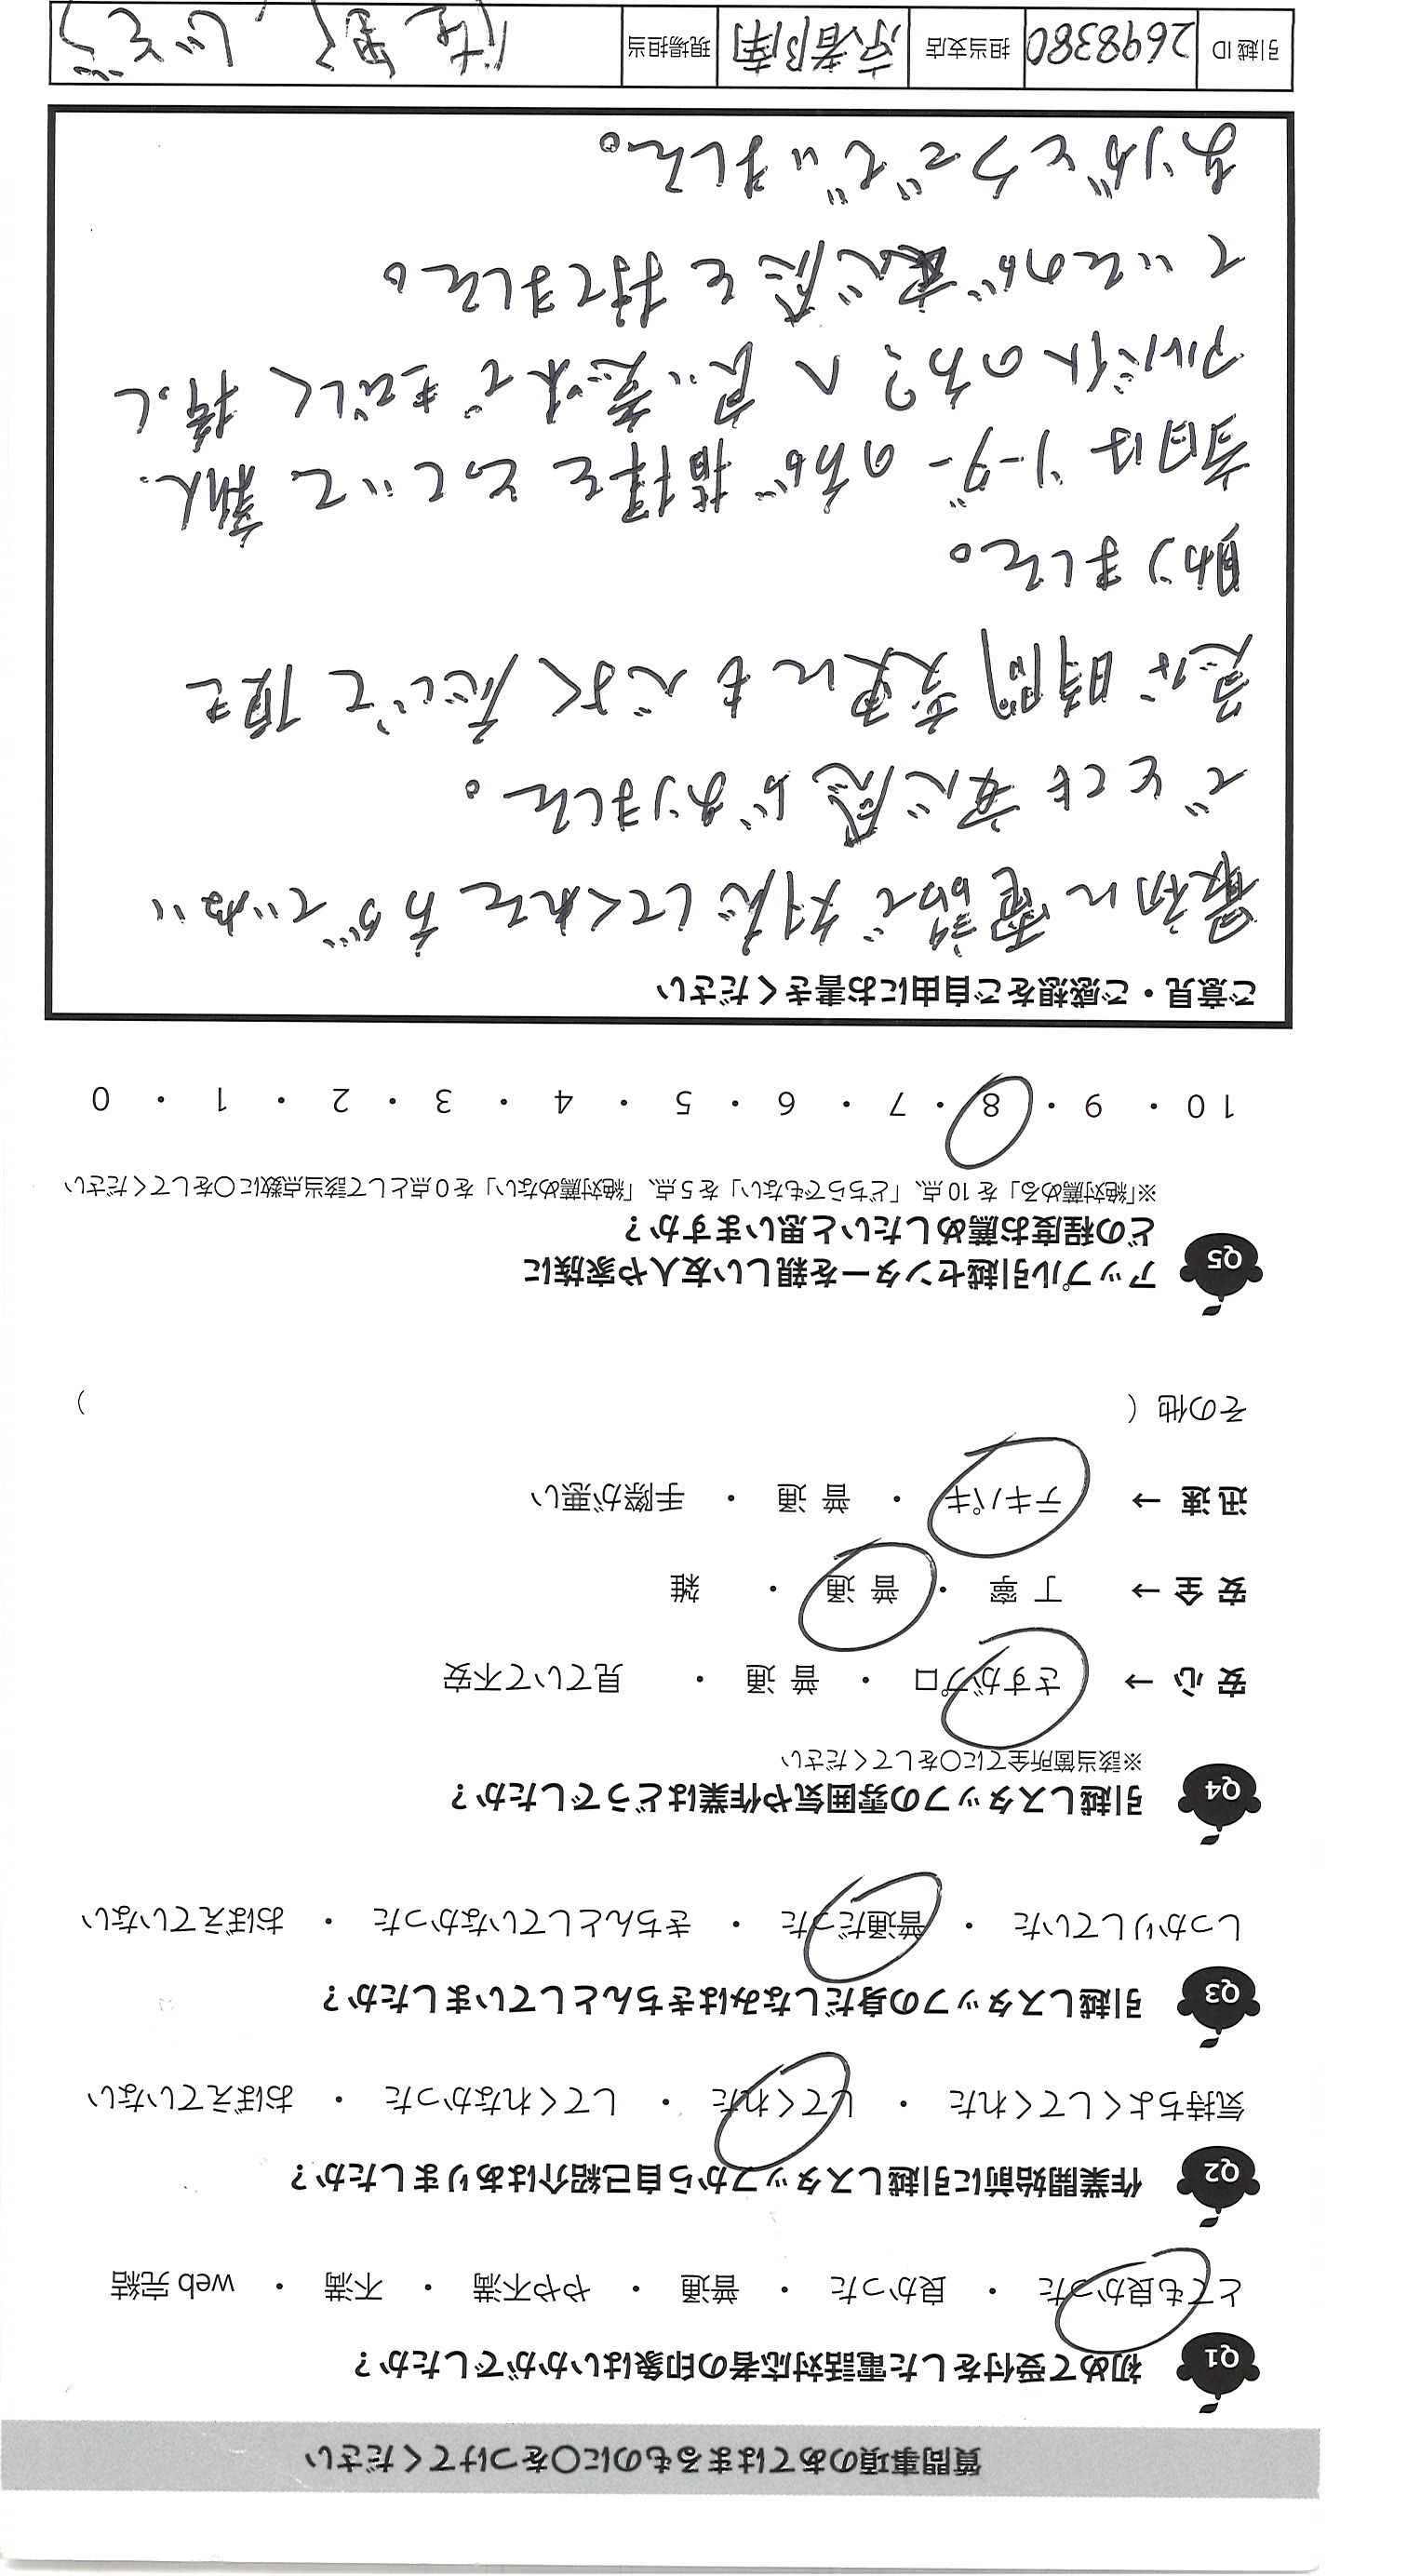 質問事項のあてはまるものに〇をつけてください
Q1 初めて受付をした電話対応者の印象はいかがでしたか？
とても良かった ・ 良かった ・ 普通 ・ やや不満 ・ 不満 ・ web 完結
Q2 作業開始前に引越しスタッフから自己紹介はありましたか？
気持ちよくしてくれた ・ してくれた ・ してくれなかった ・ おぼえていない
Q3 引越しスタッフの身だしなみはきちんとしていましたか？
しっかりしていた ・ 普通だった ・ きちんとしていなかった ・ おぼえていない
Q4 引越しスタッフの雰囲気や作業はどうでしたか？
※該当箇所全てに〇をしてください
安 心 → さすがプロ ・ 普 通 ・ 見ていて不安
安 全 → 丁 寧 ・ 普 通 ・ 雑
迅 速 → テキパキ ・ 普 通 ・ 手際が悪い
その他（ ）
Q5 アップル引越センターを親しい友人や家族に
どの程度お薦めしたいと思いますか？
※「絶対薦める」を 10 点、「どちらでもない」を 5 点、「絶対薦めない」を 0 点として該当点数に〇をしてください
10 ・ 9 ・ 8 ・ 7 ・ 6 ・ 5 ・ 4 ・ 3 ・ 2 ・ 1 ・ 0
ご意見・ご感想をご自由にお書きください
最初に電話で対応してくれた方がていねい
でとても安心感がありました。
急な時間変更にも心よく応じて頂き
助かりました。
当日はリーダーの方が指揮をとっていて新人.
アルバイトの方？へ良い意味できびしく接し
ていたのが安心感を持てました。
ありがとうございました。
引越 ID 2698380 担当支店 京都南 現場担当